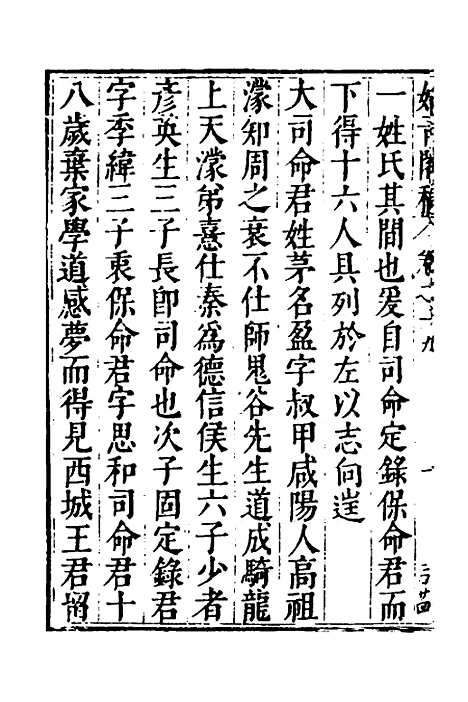 一姓氏其間也爰自司命定錄保命君而
下得十六人具列於左以志向逞
大司命君姓茅名盈字叔甲咸陽人高祖
濛知周之衰不仕師鬼谷先生道成騎龍
上天濛弟憙仕秦爲德信侯生六子少者
彦英生三子長卽司命也次子固定錄君
字季緯三子衷保命君字思和司命君十
八歲棄家學道感夢而得見西城王君